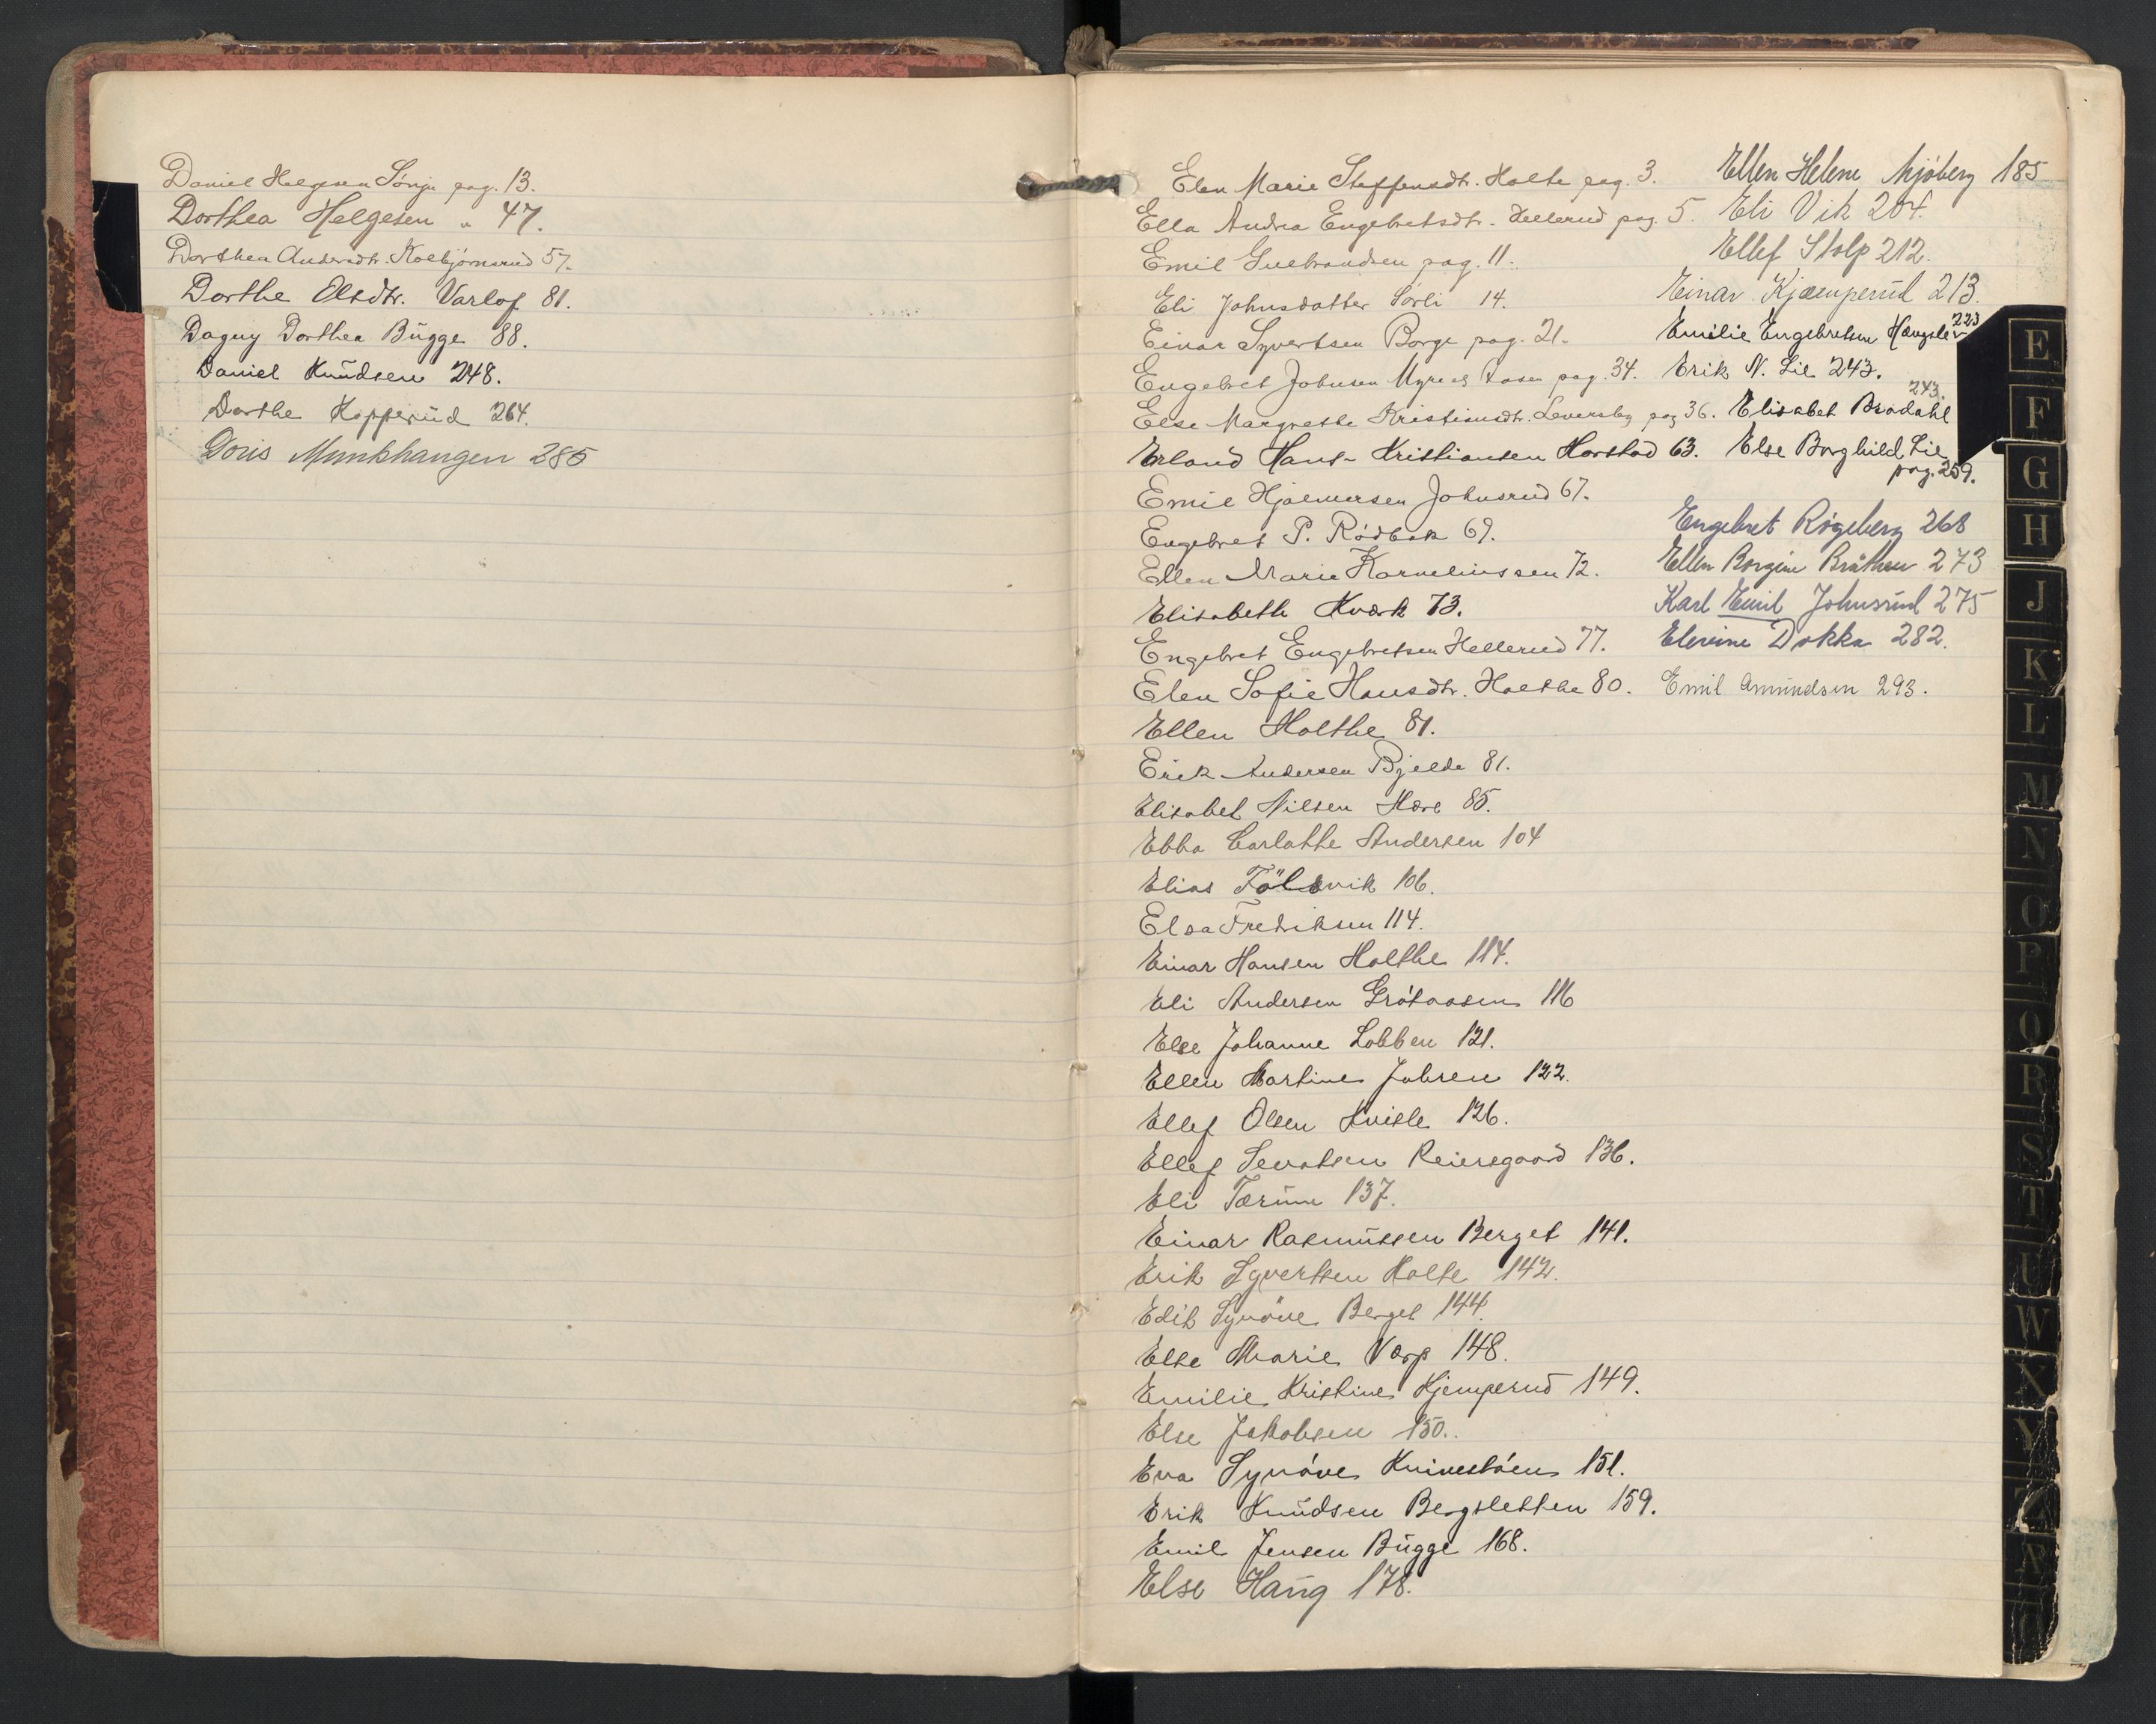 Daniel Helgesen Sønju pag. 13.
Dorthea Helgesen " 47.
Dorthea Andersdtr. Kolbjørnsrud 57.
Dorthe Olsdtr. Varlof 81.
Dagny Dorthea Bugge 88.
Daniel Knudsen 248.
Dorthe Kopperud 264.
Doris Munkhaugen 285
Elen Marie Steffensdtr. Holte pag. 3.
Ella Andrea Engebretsdtr. Hellerud pag. 5.
Emil Gulbrandsen pag. 11.
Eli Johnsdatter Sørli 14.
Einar Syvertsen Borge pag. 21.
Engebret Johnsen pag. 34.
Else Margrethe Kristiansdtr. Leversby pag 36.
Erland Hans-Kristiansen Horstad 63.
Emil Hjalmersen Johnsrud 67.
Engebret P. Rødbak 69.
Ellen Marie Korneliussen 72.
Elisabeth Kværk 73.
Engebret Engebretsen Hellerud 77.
Elen Sofie Hansdtr. Holthe 80.
Ellen Holthe 81.
Erik Andersen Bjelde 81.
Elisabet Nilsen Hære 85.
Ebba Carlotte Andersen 104
Elias Fölsvik 106.
Elsa Fredriksen 114.
Einar Hansen Holthe 114.
Eli Andersen Grøtaasen 116
Else Johanne Lobben 121.
Ellen Martine Juhren 122.
Ellef Olsen Kvisle 126.
Ellef Sevatsen Reiersgaard 136.
Eli Tærum 137.
Einar Rasmussen Berget 141.
Erik Syvertsen Holte 142.
Edit Synöve Berget 144.
Else Marie Varp 148.
Emilie Kristine Kjemperud 149.
Else Jakobsen 150.
Eva Synøve Knivestøen 151.
Erik Knudsen Bergsletten 159.
Emil Jensen Bugge 168.
Else Haug 178.
Ellen Helene Mjøberg 185
Eli Vik 204.
Ellef Stolp 212.
Einar Kjæmperud 213.
Emilie Engebretsen 223
Erik N. Lie 243.
Elisabet Brodahl 243.
Else Borghild Lie
pag. 259.
Engebret Røgeberg 268
Ellen Borgine Bråthen 273
Karl Emil Johnsrud 275
Elevine Dokka 282.
Emil Amundsen 293.
E
F
G
H
J
K
L
M
N
O
P
Q
R
S
T
U
W
X
Y
Z